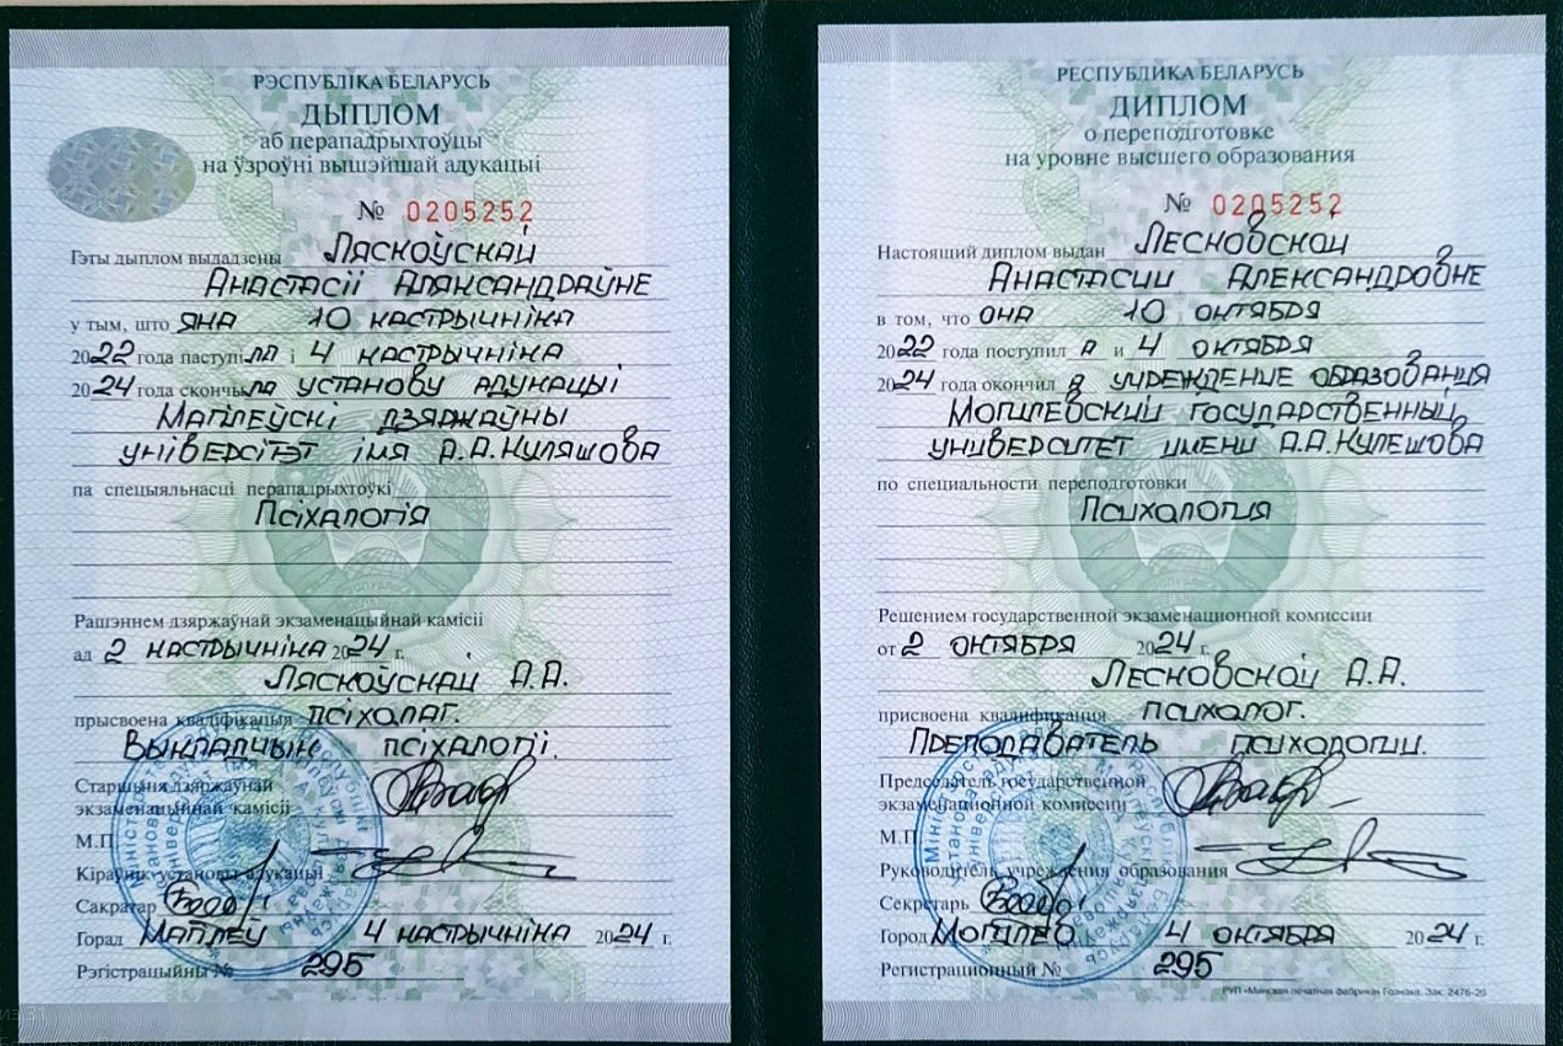 РЭСПУБЛІКА БЕЛАРУСЬ
ДЫПЛОМ
аб перападрыхтоўцы
на ўзроўні вышэйшай адукацыі
№ 0205252
Гэты дыплом выдадзены Ляскоўскай
Анастасіі Аляксандраўне
у тым, што яна 10 кастрычніка
2022 года паступіла і 4 кастрычніка
2024 года скончыла установу адукацыі
Магілеўскі дзяржаўны
універсітэт імя А.А.Куляшова
па спецыяльнасці перападрыхтоўкі
Псіхалогія
Рашэннем дзяржаўнай экзаменацыйнай камісіі
ад 2 кастрычніка 2024 г.
Ляскоўскай А.А.
прысвоена кваліфікацыя псіхолаг.
Выкладчык псіхалогіі.
Старшыня дзяржаўнай
экзаменацыйнай камісіі
М.П.
Кіраўнік установы адукацыі
Сакратар
Горад Магілеў 4 кастрычніка 2024 г.
Рэгістрацыйны № 295
РЕСПУБЛИКА БЕЛАРУСЬ
ДИПЛОМ
о переподготовке
на уровне высшего образования
№ 0205252
Настоящий диплом выдан Лесковской
Анастасии Александровне
в том, что она 10 октября
2022 года поступила и 4 октября
2024 года окончила учреждение образования
Могилевский государственный
университет имени А.А.Кулешова
по специальности переподготовки
Психология
Решением государственной экзаменационной комиссии
от 2 октября 2024 г.
Лесковской А.А.
присвоена квалификация психолог.
Преподаватель психологии.
Председатель государственной
экзаменационной комиссии
М.П.
Руководитель учреждения образования
Секретарь
Город Могилев 4 октября 2024 г.
Регистрационный № 295
РУП «Минская печатная фабрика» Гознака. Зак. 2476-20